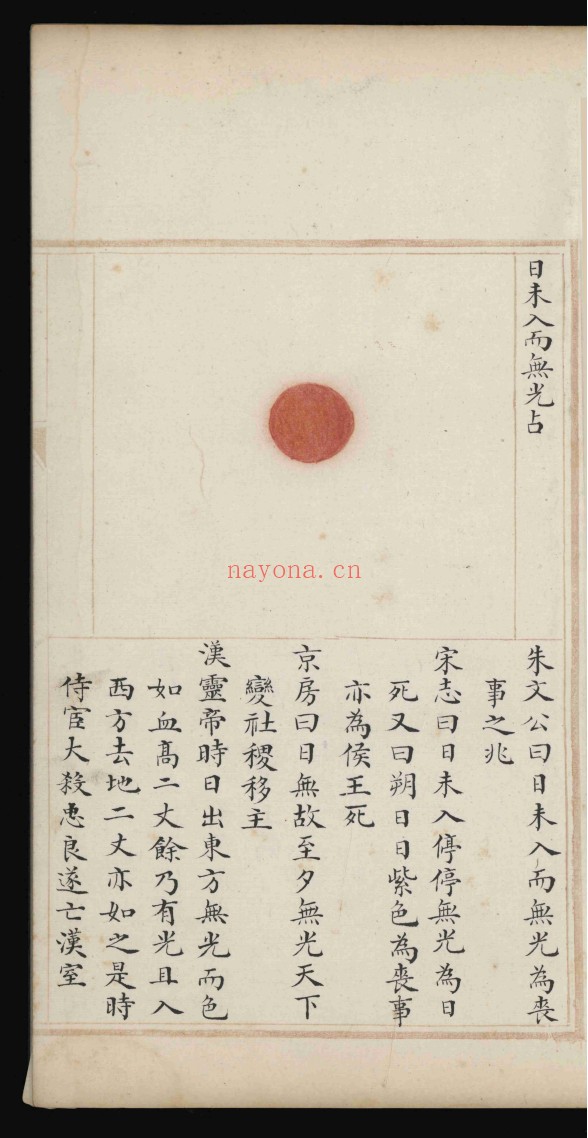 日未入而無光占
nayona.cn
朱文公曰日未入而無光為喪
事之兆
宋志曰日未入停停無光為日
死又曰朔日日紫色為喪事
亦為侯王死
京房曰日無故至夕無光天下
變社稷移主
漢靈帝時日出東方無光而色
如血高二丈餘乃有光且入
西方去地二丈亦如之是時
侍宦大殺忠良遂亡漢室